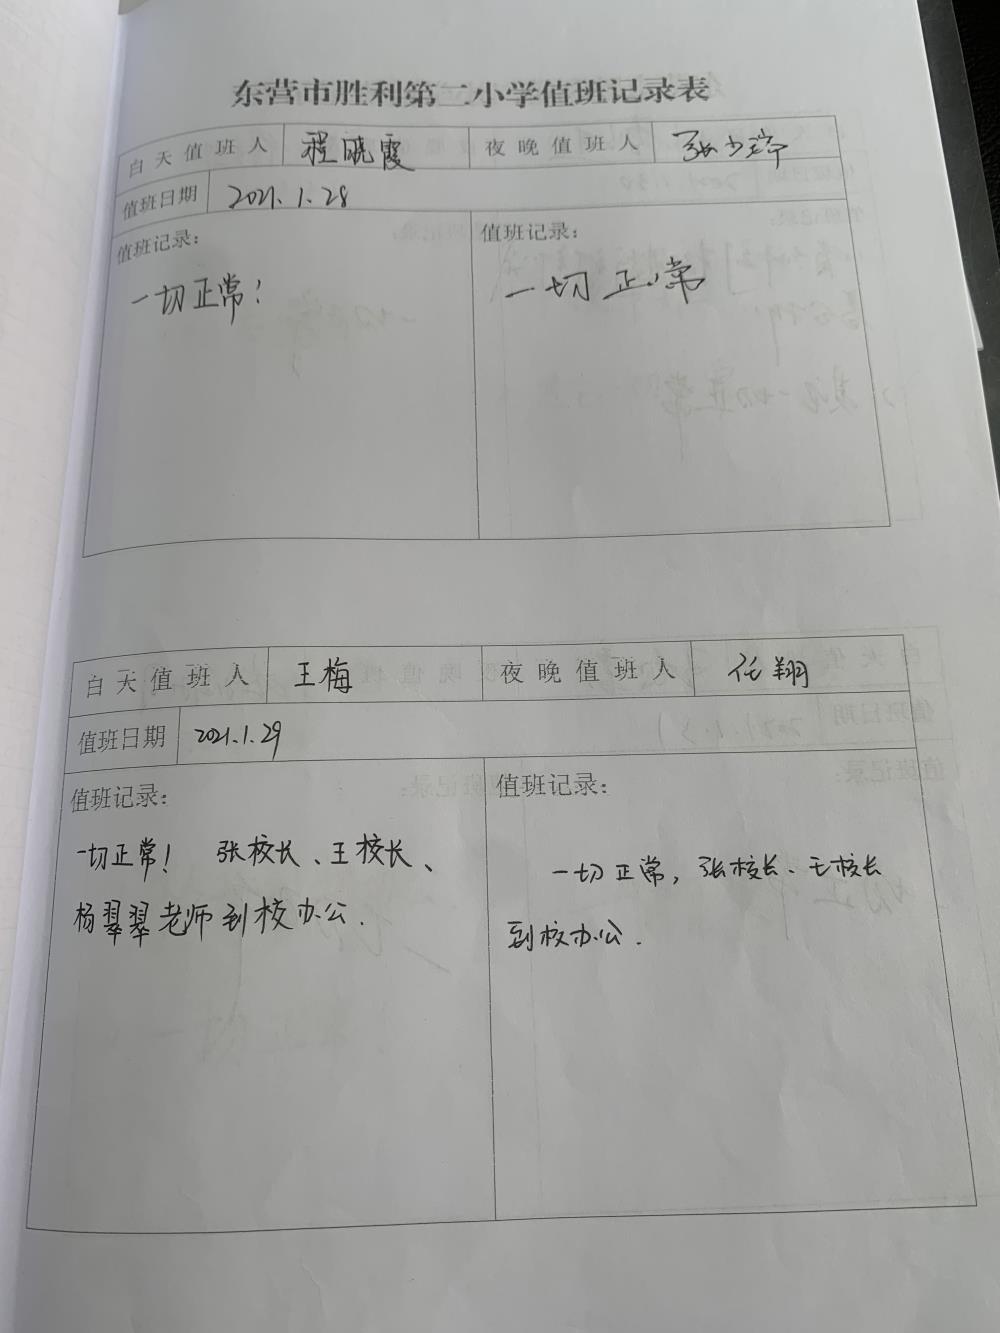 东营市胜利第二小学值班记录表
白天值班人 程晓霞 夜晚值班人 张少婷
值班日期 2021.1.28
值班记录： 值班记录：
一切正常！ 一切正常
白天值班人 王梅 夜晚值班人 任翔
值班日期 2021.1.29
值班记录：
一切正常！ 张校长、王校长、
杨翠翠老师到校办公.
值班记录：
一切正常，张校长、王校长
到校办公.